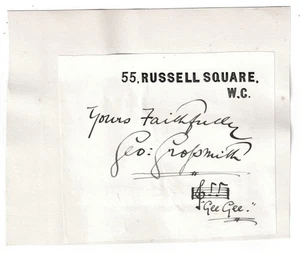 55, RUSSELL SQUARE,
W.C.
Yours Faithfully
Geo: Grossmith
"Gee Gee."